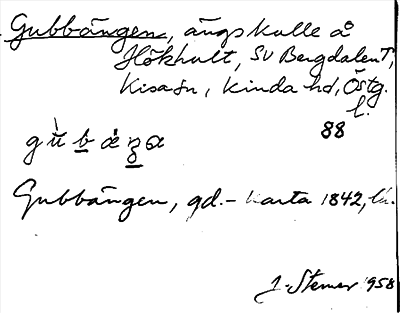 Gubbängen, ängskulle å
Hökhult, SV Bergdalen T,
Kisa sn, Kinda hd, Östg.
l.
88
gù b ä ŋ a
Gubbängen, gd.- karta 1842,
J. Stemar 1958